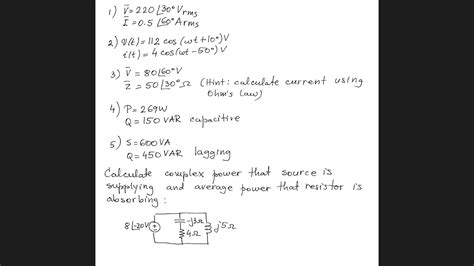 1) V̅ = 220∠30° Vrms
I̅ = 0.5∠60° Arms
2) V(t) = 112 cos(wt+10°) V
i(t) = 4 cos(wt-50°) V
3) V̅ = 80∠60° V
Z̅ = 50∠30° Ω (Hint: calculate current using
Ohm's law)
4) P = 269W
Q = 150 VAR capacitive
5) S = 600 VA
Q = 450 VAR lagging
Calculate complex power that source is
supplying and average power that resistor is
absorbing:
8∠-20V
-j3Ω
4Ω
j5Ω